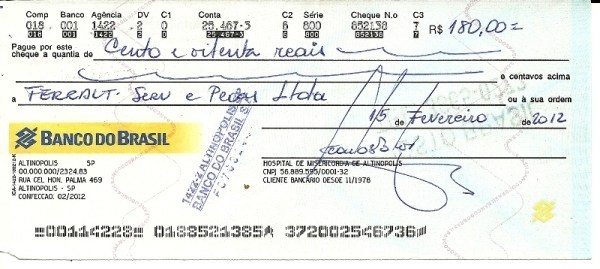 Comp Banco Agência DV C1 Conta C2 Série Cheque N.o C3
018 001 1422 2 0 25.467-3 6 800 852138 7 R$ 180,00=
Pague por este cheque a quantia de Cento e oitenta reais
e centavos acima
a FERRAUT - SERV e PEÇAS Ltda ou à sua ordem
15 de Fevereiro de 2012
BANCO DO BRASIL
ALTINOPOLIS SP
00.000.000/2324.83
RUA CEL HON. PALMA 469
ALTINOPOLIS - SP
CONFECCAO: 02/2012
1422-2 ALTINOPOLIS
BANCO DO BRASIL S
HOSPITAL DE MISERICORDIA DE ALTINOPOLIS
CNPJ 56.889.595/0001-32
CLIENTE BANCÁRIO DESDE 11/1978
00114228 0188521385 372002546736